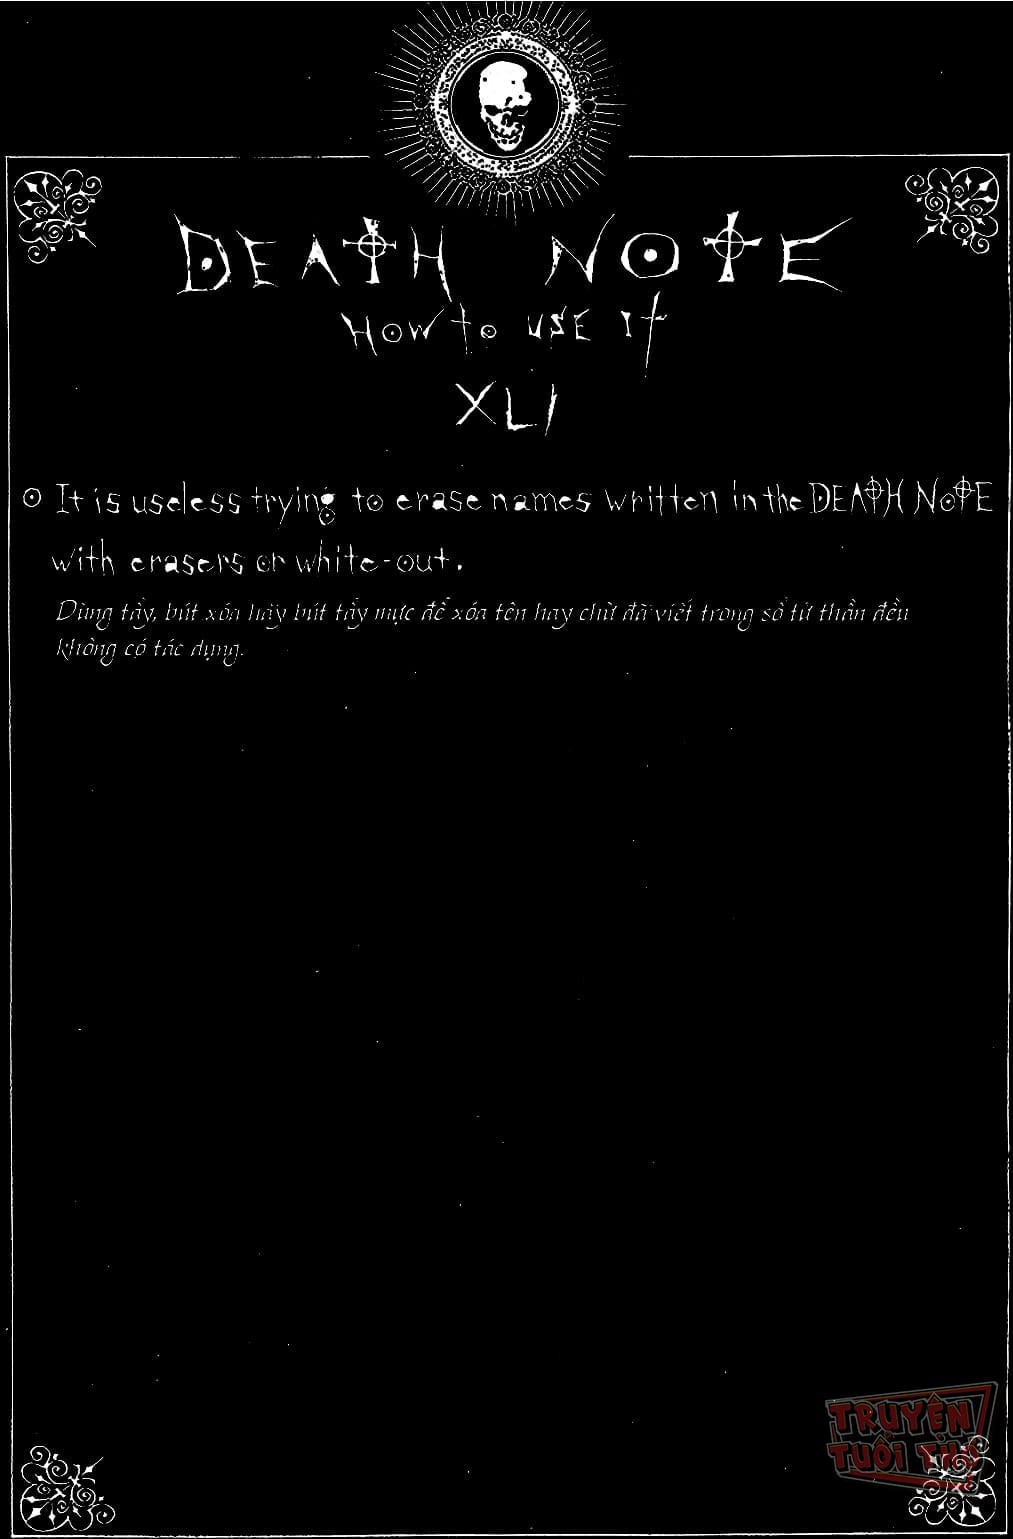 DEATH NOTE
HOW to USE It
XLI
It is useless trying to erase names written in the DEATH NOTE
with erasers or white-out.
Dùng tẩy, bút xóa hay bút tẩy mực để xóa tên hay chữ đã viết trong sổ tử thần đều
không có tác dụng.
TRUYỆN
TUỔI THƠ